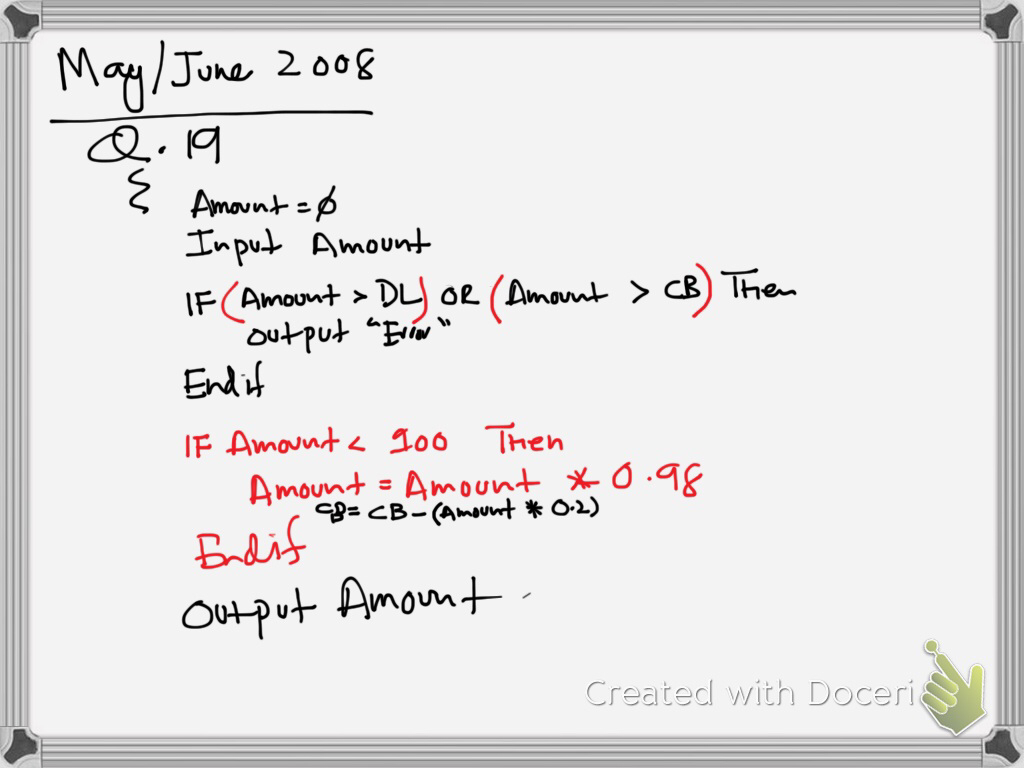 May/June 2008
Q. 19
Amount = ∅
Input Amount
IF (Amount > DL) OR (Amount > CB) Then
output "Error"
Endif
IF Amount < 100 Then
Amount = Amount * 0.98
CB = CB - (Amount * 0.2)
Endif
Output Amount
Created with Doceri